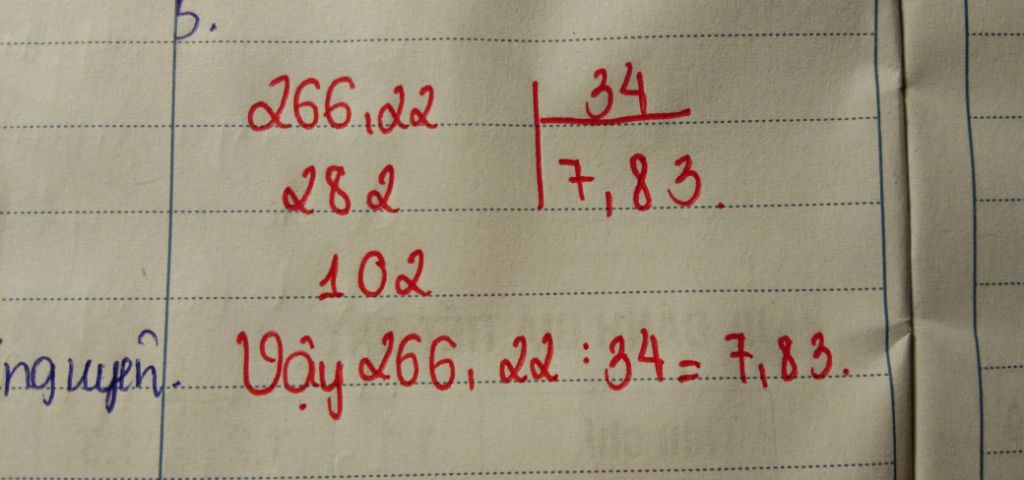 5.
266,22 34
282 7,83.
102
nguyên. Vậy 266, 22 : 34 = 7,83.